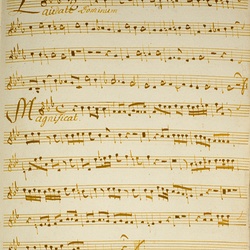 Laudate Dominum
Magnificat